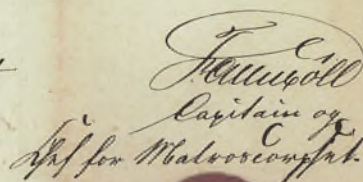 Capitain og
Chef for Matroscorpset.